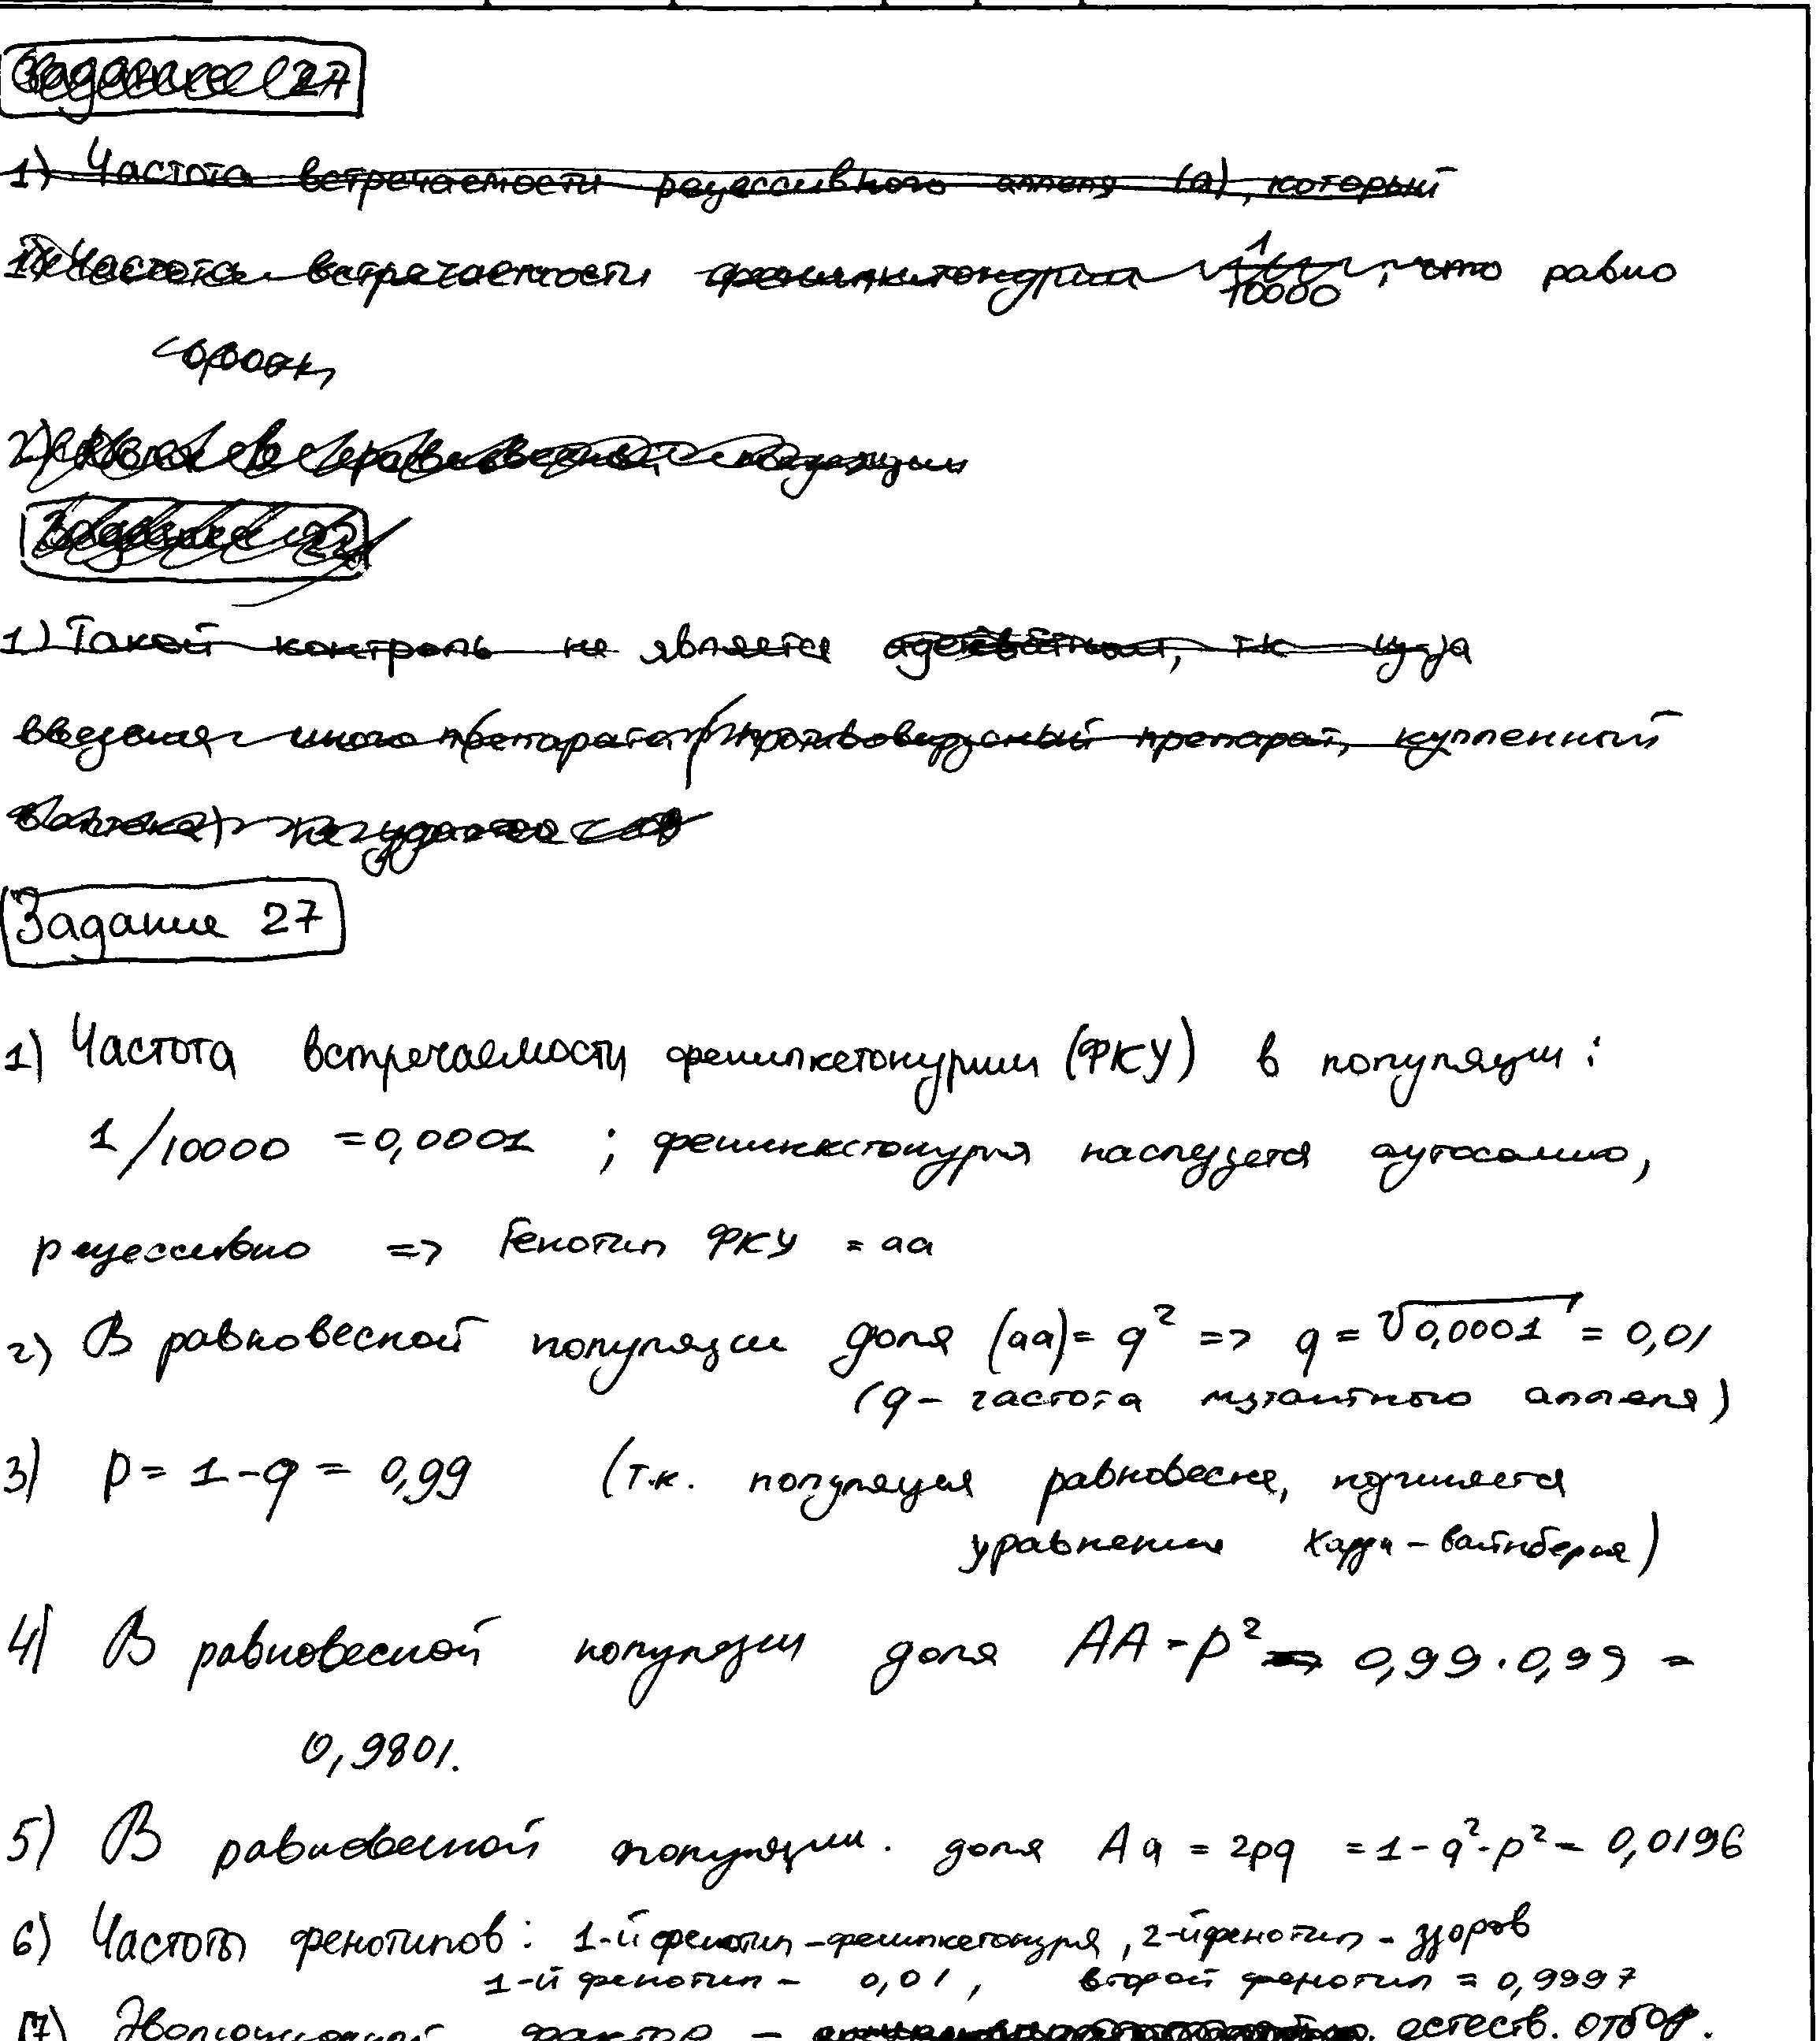 Задание 27
1) Частота встречаемости рецессивного аллеля (а), который
1) Частота встречаемости фенилкетонурии 1/10000, что равно
2) Доля в равновесной популяции
Задание 22
1) Такой контроль не является адекватным, т.к. из-за
введения иного препарата (противовирусный препарат, купленный
в аптеке) не удастся
Задание 27
1) Частота встречаемости фенилкетонурии (ФКУ) в популяции:
1/10000 = 0,0001 ; фенилкетонурия наследуется аутосомно,
рецессивно => Генотип ФКУ = аа
2) В равновесной популяции доля (аа) = q² => q = √0,0001 = 0,01
(q - частота мутантного аллеля)
3) p = 1-q = 0,99 (т.к. популяция равновесна, подчиняется
уравнению Харди-Вайнберга)
4) В равновесной популяции доля АА = p² = 0,99·0,99 =
0,9801.
5) В равновесной популяции. доля Аа = 2pq = 1-q²-p² = 0,0196
6) Частоты фенотипов: 1-й фенотип - фенилкетонурия, 2-й фенотип - здоров
1-й фенотип - 0,01, второй фенотип = 0,9997
7) Эволюционный фактор - естеств. отбор.